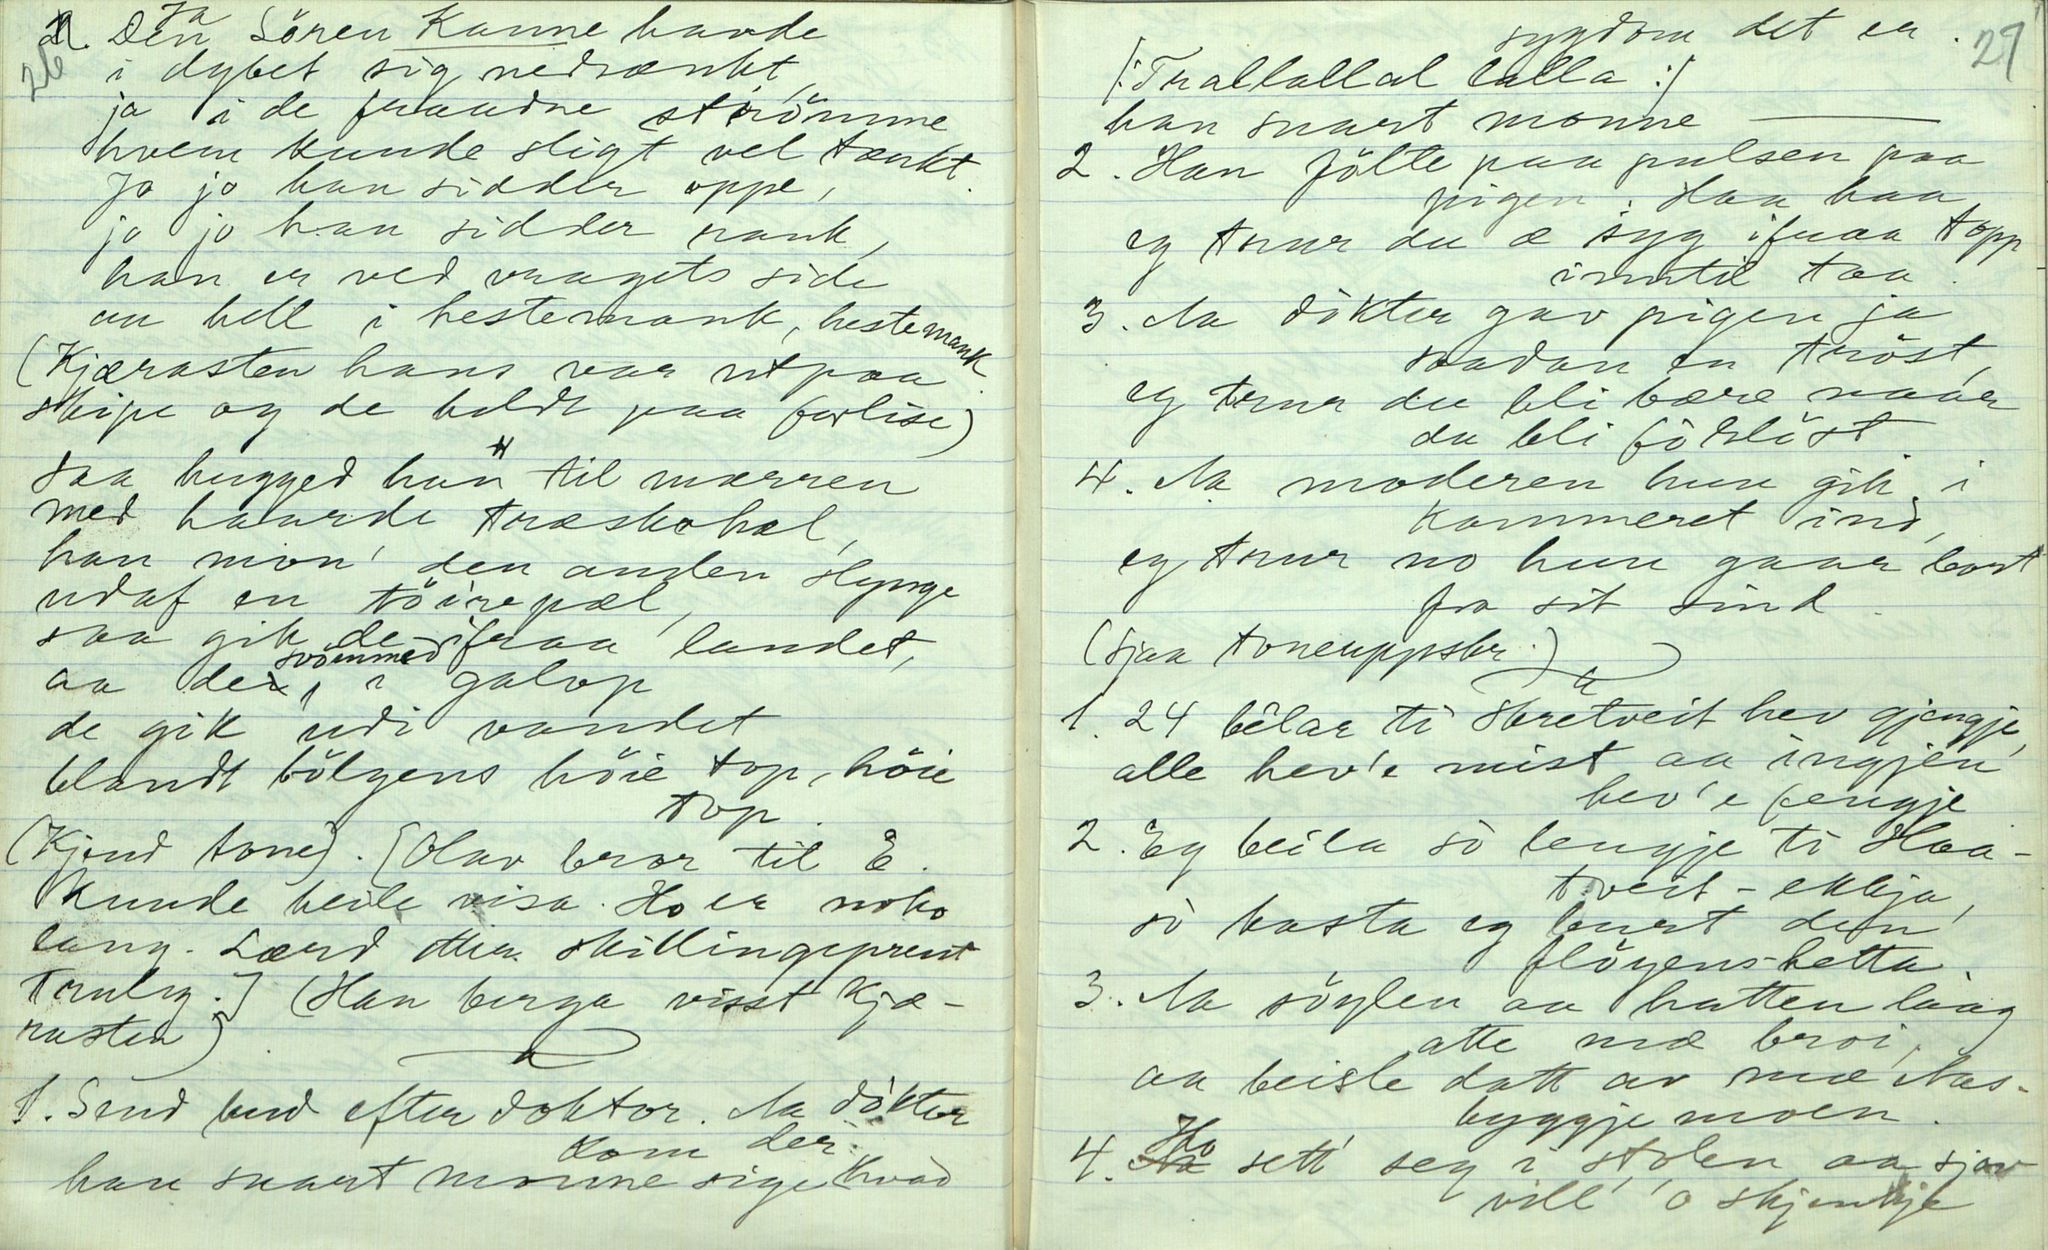 26
Ja
2. Den Sören Kanne havde
i dybet sig nedsænkt,
ja i de fraadne strömme
hvem kunde sligt vel tænkt.
Jo jo han sidder oppe,
jo jo han sidder rank,
han er ved vragets side
aa helt i hestemank, hestemank.
(Kjærasten hans var utpaa
skipe og de heldt paa forlise)
saa hugged han til mærren
med haarde træskohæl,
han mon' den anden slynge
udaf en töirepæl,
saa gik de ifraa landet,
aa de svömmed i galop
de gik udi vandet
blandt bölgens höie top, höie
top.
(Kjend tone). [Olav bror til E.
kunde heile visa. Ho er noko
lang. Lærd etter skillingsprent
truleg.] (Han berga visst kjæ-
rasten)
1. Send bud efter doktor. Aa dòkter
kom der
han snart monne sige hvad
27
sygdom det er.
/: Trallallal lalla :/
han snart monne ———
2. Han fölte paa pulsen paa
pigen. Haa haa
eg trur du æ syg ifraa topp
inntil taa.
3. Aa dòkter gav pigen ja
saadan en tröst,
eg trur du bli bære naar
du bli fòrlöst
4. Aa moderen hun gik i
kammeret ind,
eg trur no hun gaar bort
fra sit sind.
(Sjaa toneuppskr.)
1. 24 bêlar ti Skretveit hev gjengje,
alle hev'e mist aa ingjen
hev'e fengje
2. Eg beila sò lengje ti Haa-
tveit-ekkja,
sò kasta eg burt den
flöyenshetta.
3. Aa söylen aa hatten laag
atte mæ broi,
aa beisle datt av mæ Aas-
byggjemoen.
4. Ho sett' seg i stolen aa sjav
vill' o skjenkje